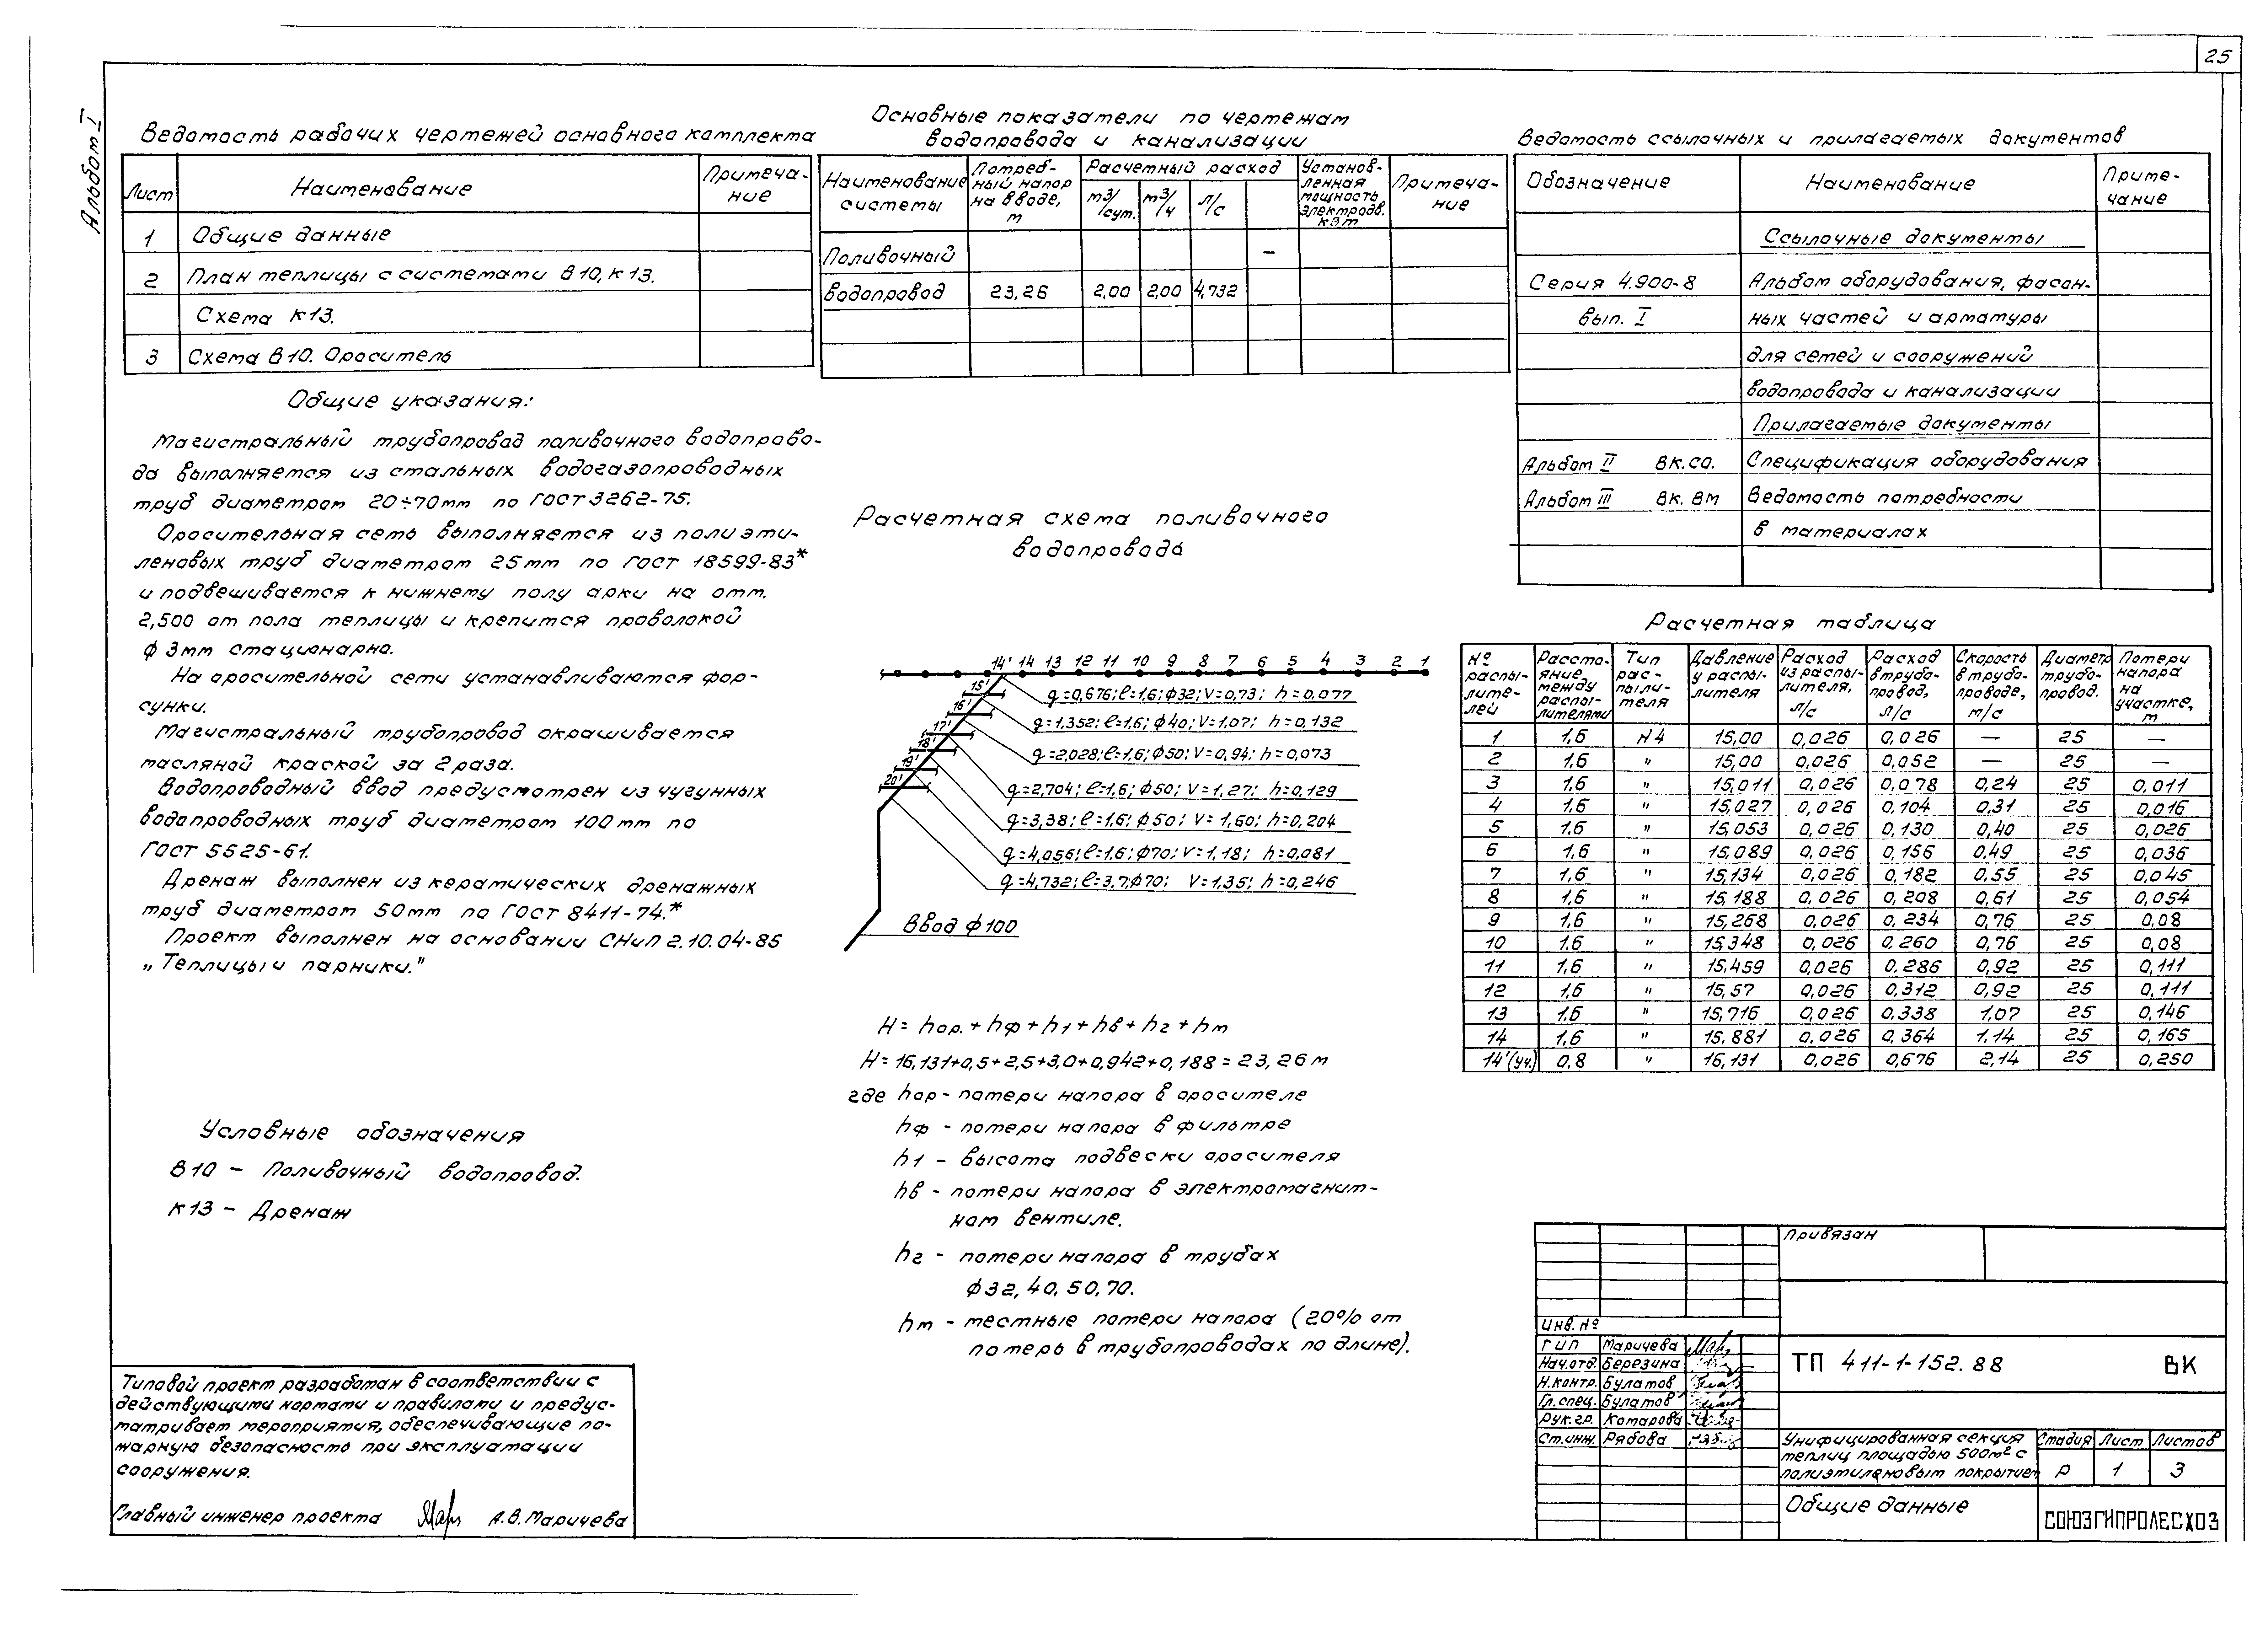 25
Альбом I
Ведомость рабочих чертежей основного комплекта
Лист Наименование Примеча-
ние
1 Общие данные
2 План теплицы с системами В10, К13.
Схема К13.
3 Схема В10. Ороситель
Основные показатели по чертежам
водопровода и канализации
Наименование
системы
Потреб-
ный напор
на вводе,
м
Расчетный расход
м3/сут. м3/ч л/с
Установ-
ленная
мощность
электродв.
кВт
Примеча-
ние
Поливочный —
водопровод 23,26 2,00 2,00 4,732
Ведомость ссылочных и прилагаемых документов
Обозначение Наименование Приме-
чание
Ссылочные документы
Серия 4.900-8 Альбом оборудования, фасон-
вып. I ных частей и арматуры
для сетей и сооружений
водопровода и канализации
Прилагаемые документы
Альбом II ВК.СО. Спецификация оборудования
Альбом III ВК. ВМ Ведомость потребности
в материалах
Общие указания:
Магистральный трубопровод поливочного водопрово-
да выполняется из стальных водогазопроводных
труб диаметром 20÷70мм по ГОСТ 3262-75.
Оросительная сеть выполняется из полиэти-
леновых труб диаметром 25мм по ГОСТ 18599-83*
и подвешивается к нижнему полу арки на отм.
2,500 от пола теплицы и крепится проволокой
ф 3мм стационарно.
На оросительной сети устанавливаются фор-
сунки.
Магистральный трубопровод окрашивается
масляной краской за 2 раза.
Водопроводный ввод предусмотрен из чугунных
водопроводных труб диаметром 100мм по
ГОСТ 5525-61.
Дренаж выполнен из керамических дренажных
труб диаметром 50мм по ГОСТ 8411-74.*
Проект выполнен на основании СНиП 2.10.04-85
„Теплицы и парники."
Условные обозначения
В10 – Поливочный водопровод.
К13 – Дренаж
Типовой проект разработан в соответствии с
действующими нормами и правилами и предус-
матривает мероприятия, обеспечивающие по-
жарную безопасность при эксплуатации
сооружения.
Главный инженер проекта А.В. Маричева
Расчетная схема поливочного
водопровода
14' 14 13 12 11 10 9 8 7 6 5 4 3 2 1
15'
16'
17'
18'
19'
20'
q=0,676; ℓ=1,6; ф32; V=0,73; h=0.077
q=1,352; ℓ=1,6; ф40; V=1,07; h=0,132
q=2,028; ℓ=1,6; ф50; V=0,94; h=0,073
q=2,704; ℓ=1,6; ф50; V=1,27; h=0,129
q=3,38; ℓ=1,6; ф50; V=1,60; h=0,204
q=4,056; ℓ=1,6; ф70; V=1,18; h=0,081
q=4,732; ℓ=3,7; ф70; V=1,35; h=0,246
Ввод ф100
H= hор. + hф + h1 + hв + hг + hм
H=16,131+0,5+2,5+3,0+0,942+0,188=23,26м
где hор- потери напора в оросителе
hф - потери напора в фильтре
h1 - высота подвески оросителя
hв - потери напора в электромагнит-
ном вентиле.
hг - потери напора в трубах
ф32,40,50,70.
hм - местные потери напора (20% от
потерь в трубопроводах по длине).
Расчетная таблица
№
распы-
лите-
лей
Рассто-
яние
между
распы-
лителями
Тип
рас-
пыли-
теля
Давление
у распы-
лителя
Расход
из распы-
лителя,
л/с
Расход
в трубо-
провод,
л/с
Скорость
в трубо-
проводе,
м/с
Диаметр
трубо-
провод.
Потери
напора
на
участке,
м
1 1,6 N4 15,00 0,026 0,026 — 25 —
2 1,6 " 15,00 0,026 0,052 — 25 —
3 1,6 " 15,011 0,026 0,078 0,24 25 0,011
4 1,6 " 15,027 0,026 0,104 0,31 25 0,016
5 1,6 " 15,053 0,026 0,130 0,40 25 0,026
6 1,6 " 15,089 0,026 0,156 0,49 25 0,036
7 1,6 " 15,134 0,026 0,182 0,55 25 0,045
8 1,6 " 15,188 0,026 0,208 0,61 25 0,054
9 1,6 " 15,268 0,026 0,234 0,76 25 0,08
10 1,6 " 15,348 0,026 0,260 0,76 25 0,08
11 1,6 " 15,459 0,026 0,286 0,92 25 0,111
12 1,6 " 15,57 0,026 0,312 0,92 25 0,111
13 1,6 " 15,716 0,026 0,338 1,07 25 0,146
14 1,6 " 15,881 0,026 0,364 1,14 25 0,165
14'(уч.) 0,8 " 16,131 0,026 0,676 2,14 25 0,250
Привязан
Инв. №
ГИП Маричева
Нач.отд. Березина
Н.контр. Булатов
Гл.спец. Булатов
Рук.гр. Комарова
Ст.инж. Рябова
ТП 411-1-152.88 ВК
Унифицированная секция
теплиц площадью 500м² с
полиэтиленовым покрытием
Стадия Лист Листов
Р 1 3
Общие данные
СОЮЗГИПРОЛЕСХОЗ